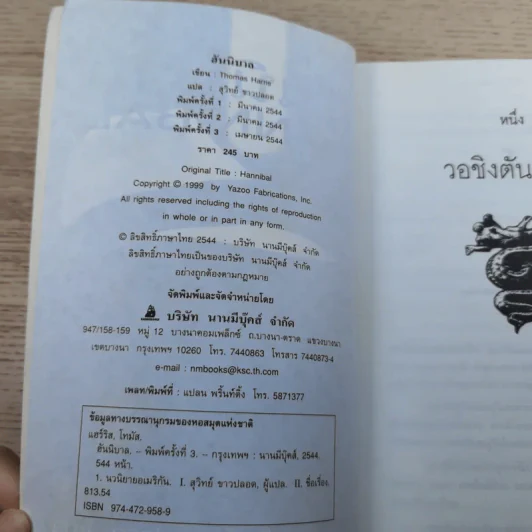 ฮันนิบาล
เขียน : Thomas Harris
แปล : สุวิทย์ ขาวปลอด
พิมพ์ครั้งที่ 1 : มีนาคม 2544
พิมพ์ครั้งที่ 2 : มีนาคม 2544
พิมพ์ครั้งที่ 3 : เมษายน 2544
ราคา 245 บาท
Original Title : Hannibal
Copyright © 1999 by Yazoo Fabrications, Inc.
All rights reserved including the rights of reproduction
in whole or in part in any form.
© ลิขสิทธิ์ภาษาไทย 2544 : บริษัท นานมีบุ๊คส์ จำกัด
ลิขสิทธิ์ภาษาไทยเป็นของบริษัท นานมีบุ๊คส์ จำกัด
อย่างถูกต้องตามกฎหมาย
จัดพิมพ์และจัดจำหน่ายโดย
บริษัท นานมีบุ๊คส์ จำกัด
947/158-159 หมู่ 12 บางนาคอมเพล็กซ์ ถ.บางนา-ตราด แขวงบางนา
เขตบางนา กรุงเทพฯ 10260 โทร. 7440863 โทรสาร 7440873-4
e-mail : nmbooks@ksc.th.com
เพลท/พิมพ์ที่ : แปลน พริ้นท์ติ้ง โทร. 5871377
ข้อมูลทางบรรณานุกรมของหอสมุดแห่งชาติ
แฮร์ริส, โทมัส.
ฮันนิบาล. – พิมพ์ครั้งที่ 3. – กรุงเทพฯ : นานมีบุ๊คส์, 2544.
544 หน้า.
1. นวนิยายอเมริกัน. I. สุวิทย์ ขาวปลอด, ผู้แปล. II. ชื่อเรื่อง.
813.54
ISBN 974-472-958-9
หนึ่ง
วอชิงตัน